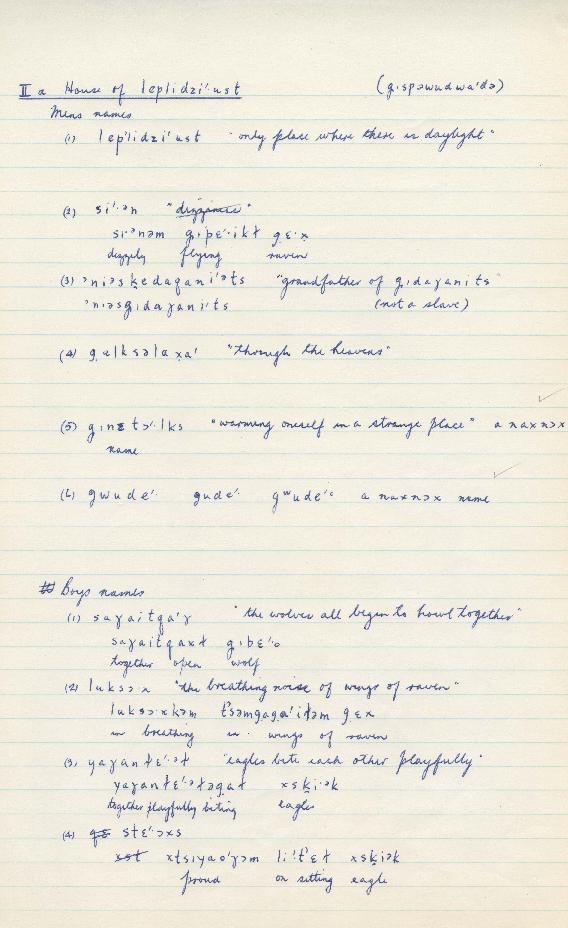 II a House of leplidzi'·ust (gıspəwudwa'də)
Mens names
(1) lep'lidzi'ust "only place where there is daylight"
(2) si'·ən "dizziness"
si·'ənəm gıpɛ'·ikł gɛ·x
dizzily flying raven
(3) 'niəsḳedaqani'əts "grandfather of gıdaɣanits"
'nıəsgıdaɣani'ts (not a slave)
(4) gulksəlaxa' "through the heavens"
(5) gınɛtɔ'·lks "warming oneself in a strange place" a naxnɔx
name
(6) gwude'· gude'· gʷude'· a naxnɔx name
Boys names
(1) saɣaitqa'ɣ "the wolves all begin to howl together"
saɣaitqaxł gıbɛ'·o
together open wolf
(2) luksɔ·x "the breathing noise of wings of raven"
luksɔ·xkəm t'səmgaqa'iłəm gɛx
in breathing in· wings of raven
(3) yaɣanłɛ'·əł "eagles bite each other playfully"
yaɣanłɛ'·əłəgał xsḳi·ək
together playfully biting eagles
(4) stɛ'·ɔxs
xst xłsıyao'ɣəm li·'t'ɛł xsḳiək
proud on sitting eagle